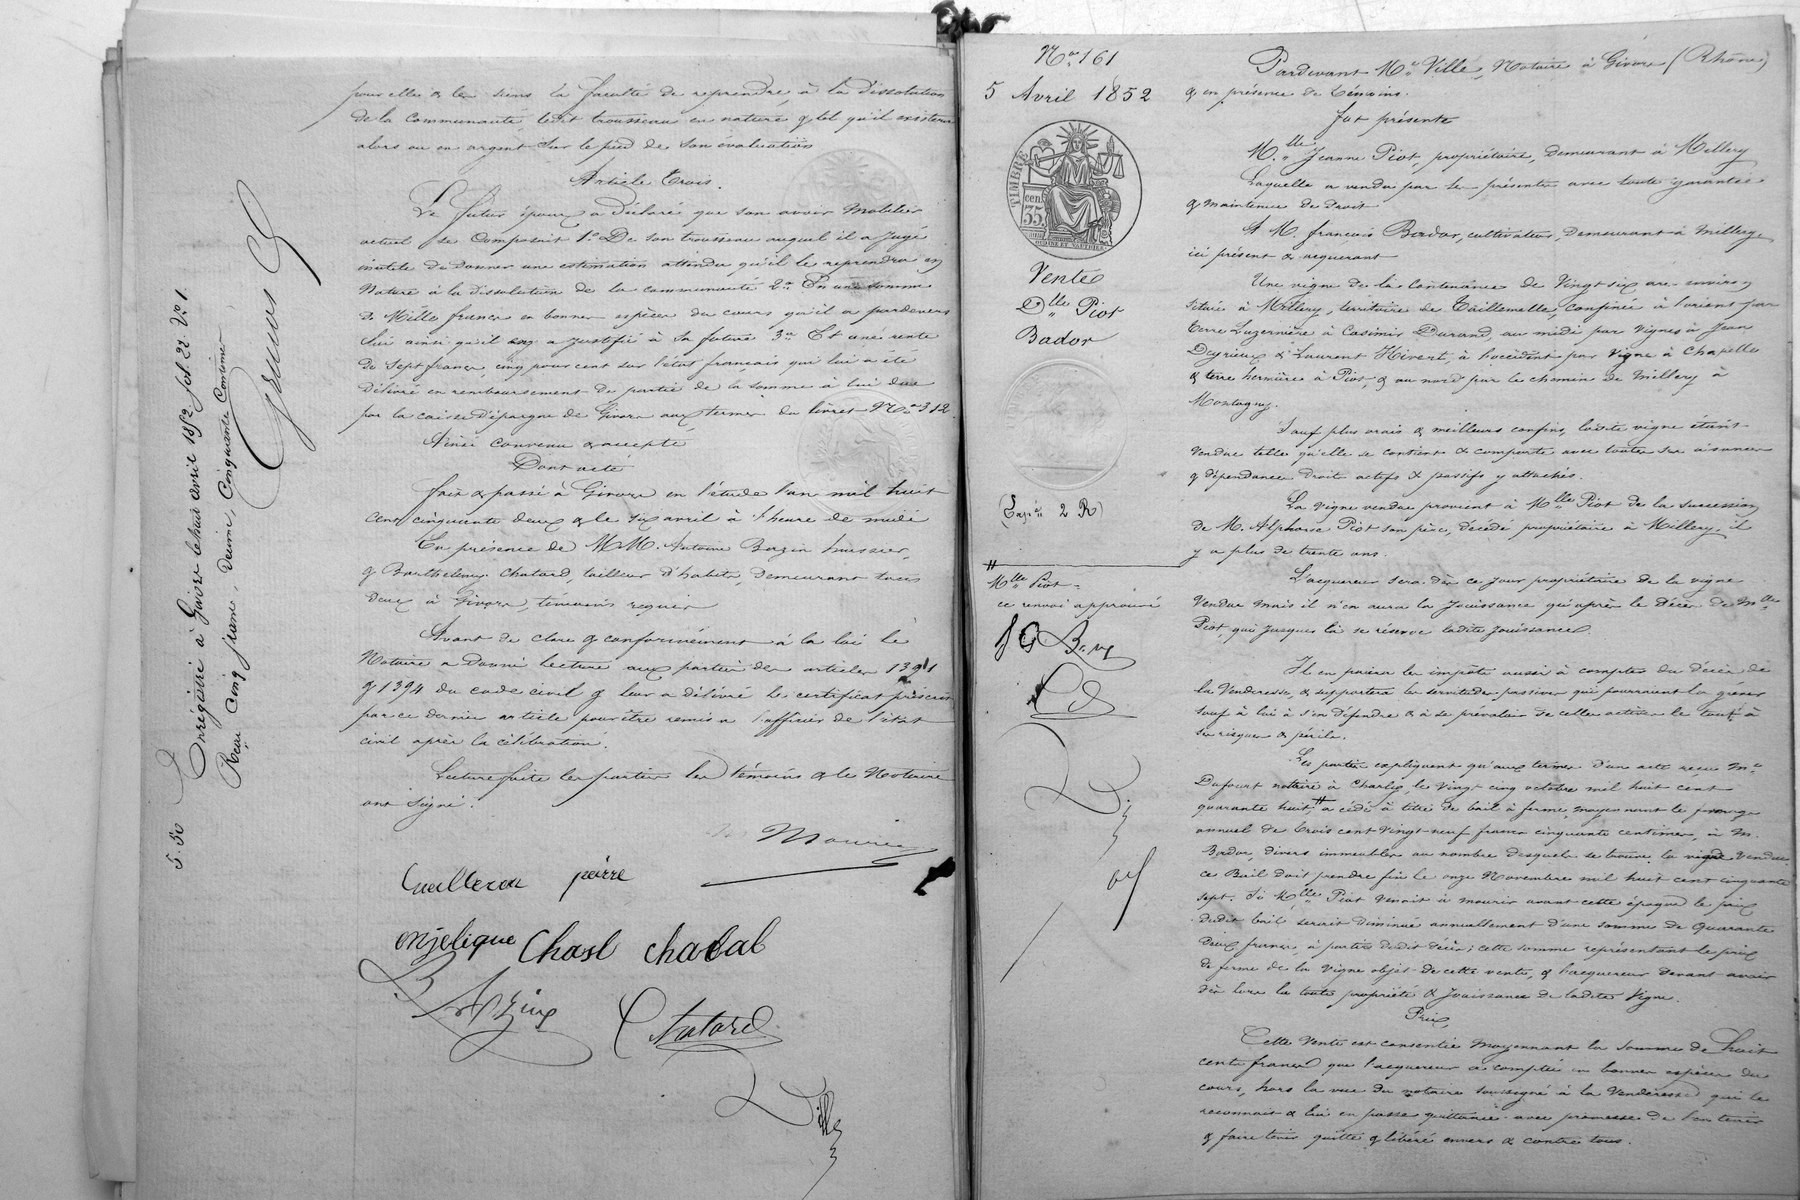 pour elle & les siens la faculté de reprendre, à la dissolution
de la communauté, ledit trousseau en nature & tel qu'il existera
alors ou en argent sur le pied de son évaluation
Article trois.
Le futur époux a déclaré que son avoir mobilier
actuel se composait 1.º De son trousseau auquel il a jugé
inutile de donner une estimation attendu qu'il le reprendra en
nature à la dissolution de la communauté 2.º En une somme
de Mille francs en bonnes espèces du cours qu'il a pardevers
lui ainsi qu'il en a justifié à sa future 3.º Et une rente
de sept francs, cinq pour cent sur l'état français qui lui a été
délivré en remboursement de partie de la somme à lui due
par la caisse d'épargne de Givors aux termes du livret N.º 312.
Ainsi convenu & accepté
Dont acte
fait & passé à Givors en l'étude l'an mil huit
cent cinquante deux & le six avril à l'heure de midi
En présence de M.M. Antoine Bazin huissier,
& Barthelemy Chatard, tailleur d'habits, demeurant tous
deux à Givors, témoins requis
Avant de clore & conformément à la loi le
Notaire a donné lecture aux parties des articles 1391
& 1394 du code civil & leur a délivré le certificat prescrit
par ce dernier article pour être remis à l'officier de l'état
civil après la célébration.
Lecture faite les parties les témoins & le Notaire
ont signé.
Cuilleron pierre
enjelique Chasl chatal
Bazin
Chatard
Ville
5.50
Enrégistré à Givors le huit avril 1852 fol. 22 V.º 1.
Reçu cinq francs, decime, Cinquante Centimes
N.º 161
5 Avril 1852
TIMBRE
35 cen.
Vente
D.lle Piot
Bador
(Exp.on 2 R)
M.lle Piot
ce renvoi approuvé
Pardevant M.e Ville, Notaire à Givors (Rhône)
& en présence de témoins.
fut présente
M.lle Jeanne Piot, propriétaire, demeurant à Millery
Laquelle a vendu par les présentes avec toute garantie
& maintenue de droit
A M. francois Bador, cultivateur, demeurant à millery,
ici présent & acquerant
Une vigne de la contenance de Vingt six ares environ
située à Millery, territoire de Taillemelle, confinée à l'orient par
terre Luzernière à Casimir Durand, au midi par vignes à Jean
Deyrieux & Laurent Hivert, à l'occident par vigne à Chapelle
& terre hermière à Piot, & au nord par le chemin de Millery à
Montagny.
Sauf plus vrais & meilleurs confins, ladite vigne étant
vendue telle qu'elle se contient & comporte avec toutes ses aisances
& dépendances droits actifs & passifs y attachés.
La vigne vendue provient à M.lle Piot de la succession
de M. Alphonse Piot son père, décédé propriétaire à Millery, il
y a plus de trente ans.
L'acquereur sera dès ce jour propriétaire de la vigne
vendue mais il n'en aura la jouissance qu'après le décès de M.lle
Piot, qui jusques là se réserve ladite jouissance.
Il en paiera les impôts aussi à compter du décès de
la Venderesse, & supportera les servitudes passives qui pourraient la gréver
sauf à lui à s'en défendre & à se prévaloir de celles actives le tout à
ses risques & périls.
Les parties expliquent qu'aux termes d'un acte reçu M.e
Dufourt notaire à Charly, le vingt cinq octobre mil huit cent
quarante huit, a cédé à titre de bail à ferme, moyennant le prix
annuel de trois cent vingt neuf francs cinquante centimes, à M.
Bador, divers immeubles au nombre desquels se trouve la vigne vendue
ce Bail doit prendre fin le onze Novembre mil huit cent cinquante
sept. Si M.lle Piot venait à mourir avant cette époque le prix
dudit bail serait diminué annuellement d'une somme de quarante
deux francs, à partir dudit décès; cette somme représentant le prix
de ferme de la vigne objet de cette vente, & l'acquereur devant avoir
dès lors la toute propriété & jouissance de ladite vigne.
Prix
Cette vente est consentie moyennant la somme de huit
cents francs que l'acquereur a comptée en bonnes espèces du
cours, hors la vue du notaire soussigné à la Venderesse qui le
reconnait & lui en passe quittance avec promesse de l'en tenir
& faire tenir quitte & libéré envers & contre tous.